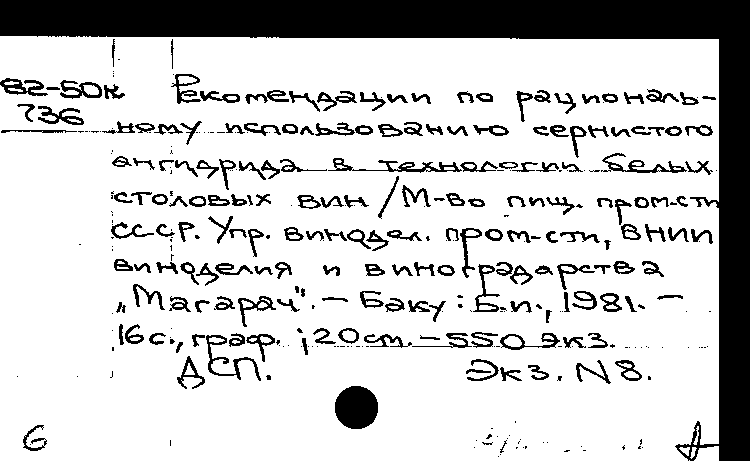 82-50к Рекомендации по рациональ-
736 ному использованию сернистого
ангидрида в технологии белых
столовых вин / М-во пищ. пром-сти
СССР. Упр. винодел. пром-сти, ВНИИ
виноделия и виноградарства
„Магарач". - Баку : Б.и., 1981. -
16 с., граф. ; 20 см. - 550 экз.
ДСП. Экз. N 8.
6